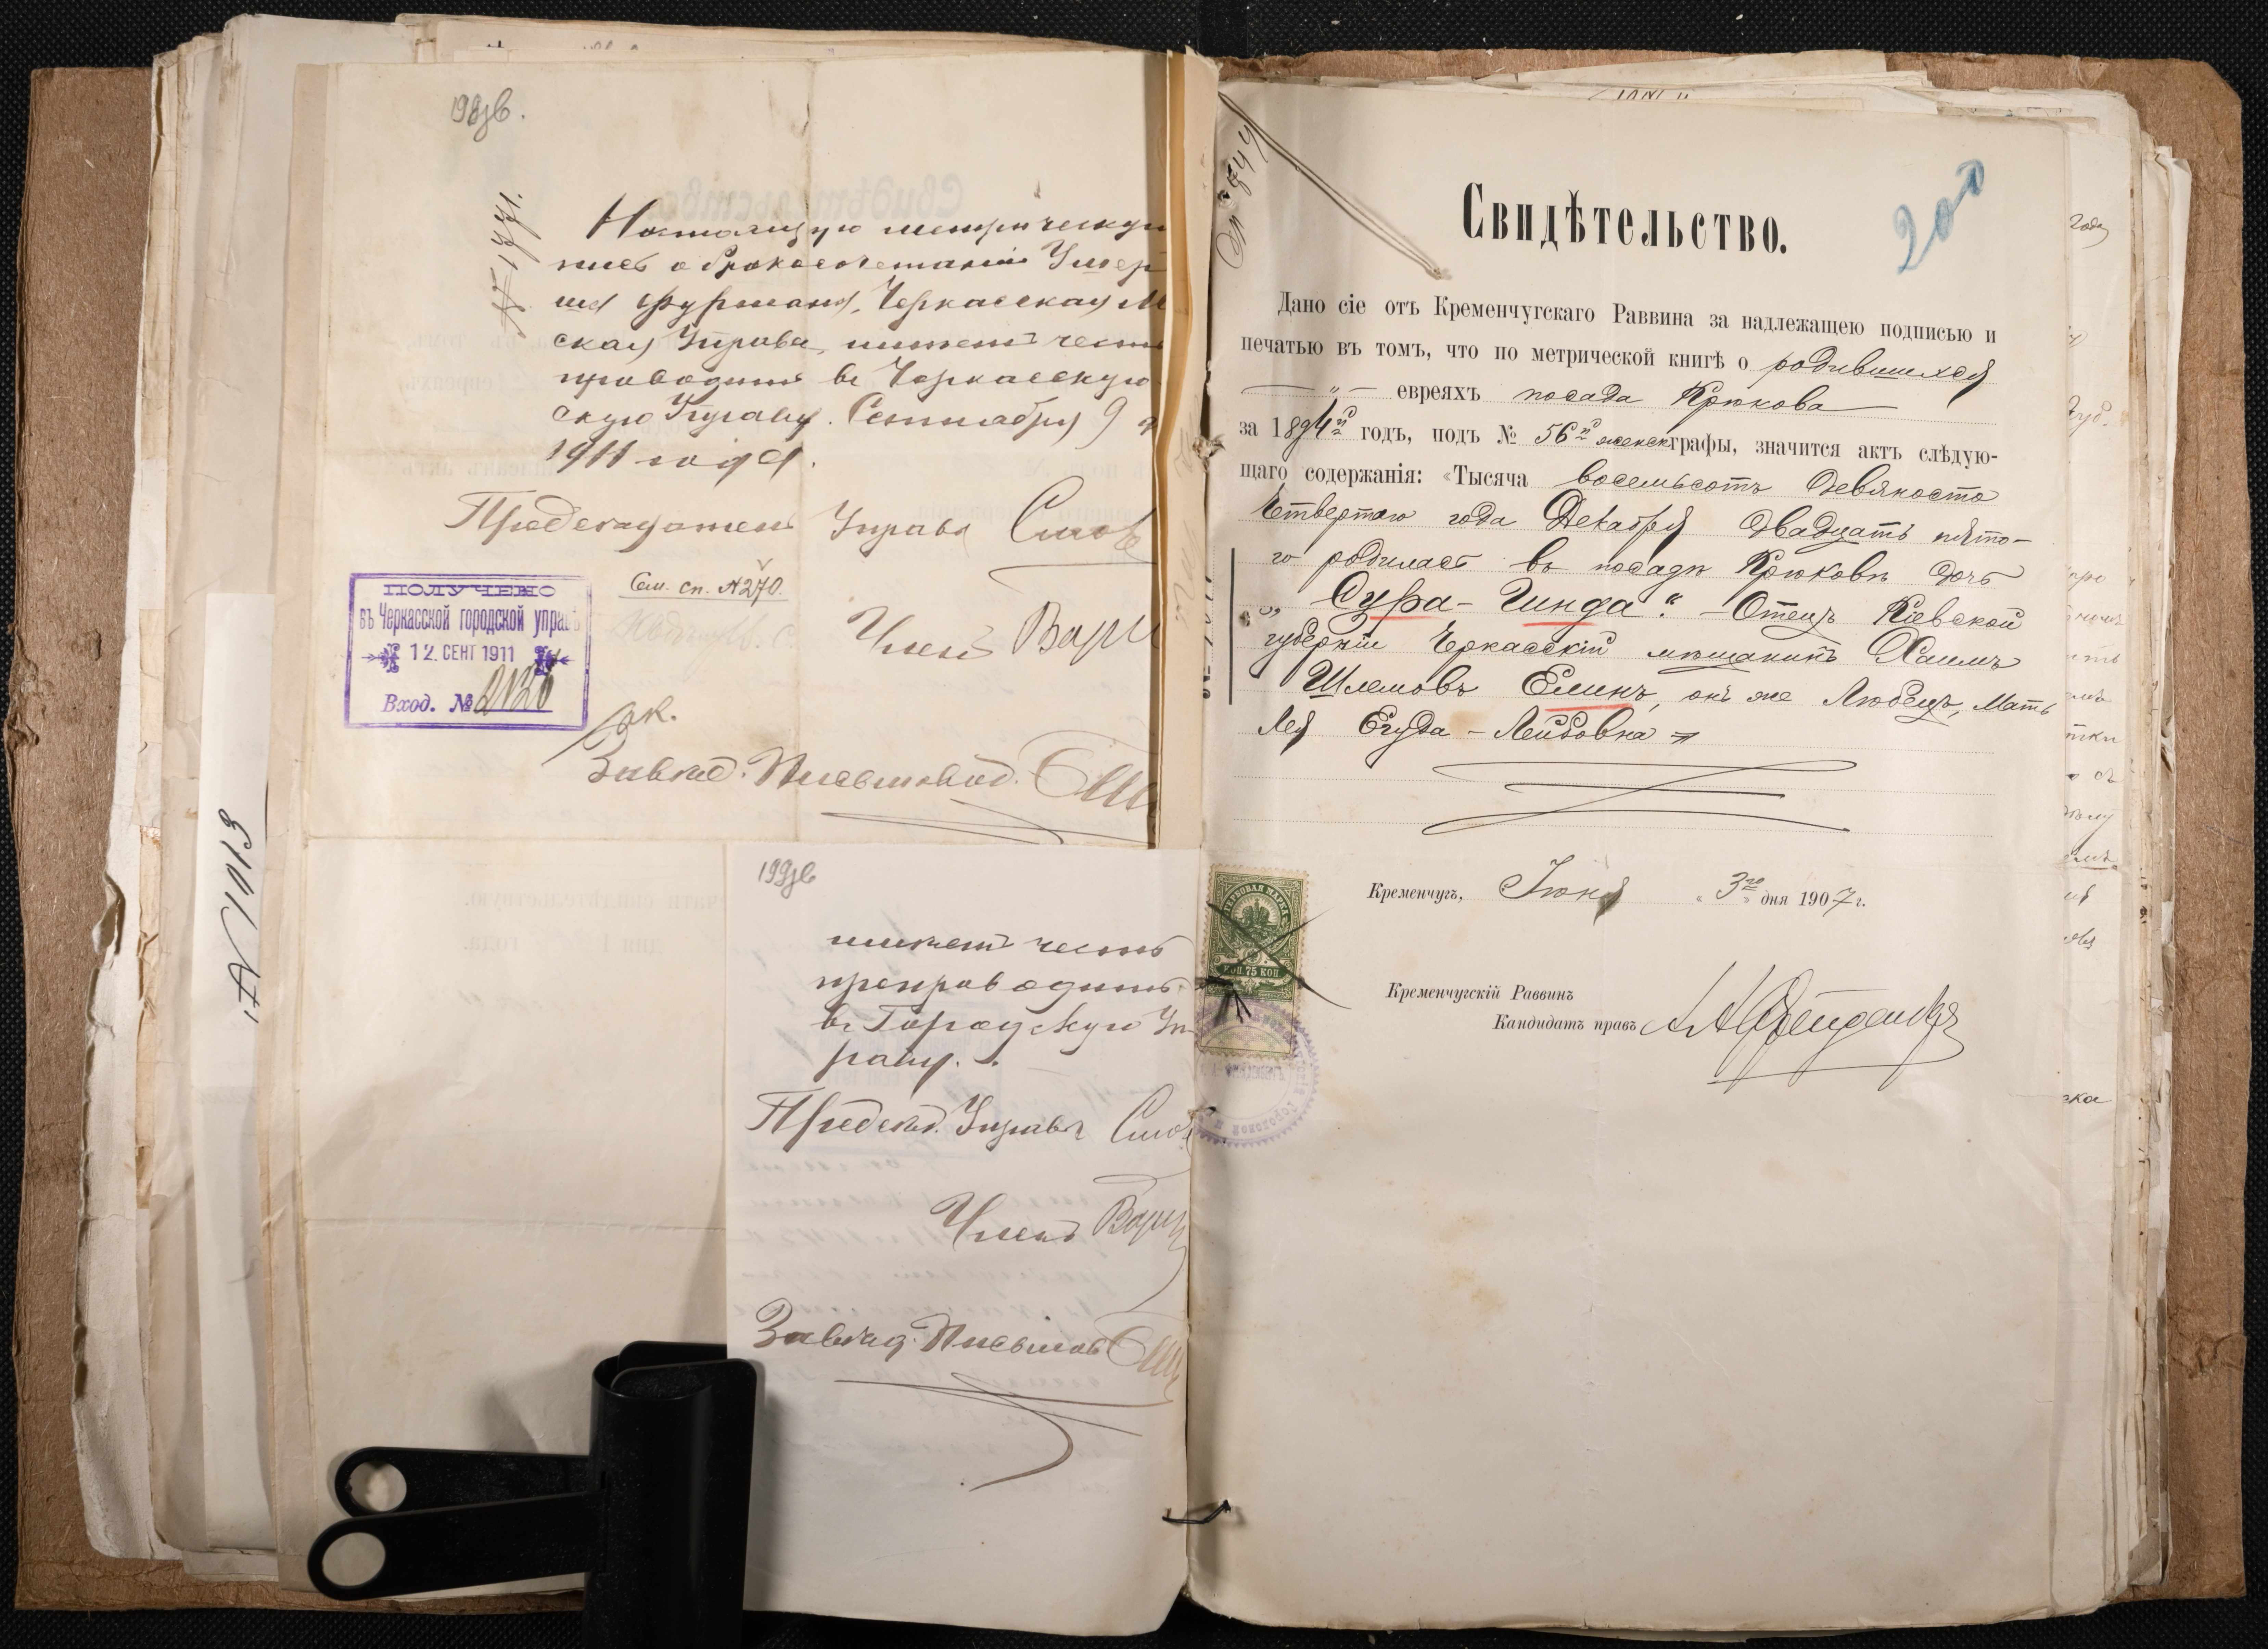 198об.
№ 1771.
Настоящую метрическую
пись о бракосочетаніи Умер
ша Фурмана, Черкасская М
ская Управа, имѣетъ честь
проводить въ Черкасскую
скую Управу. Сентября 9 д
1911 года.
Предсѣдатель Управы
См. сп. № 270.
ПОЛУЧЕНО
въ Черкасской городской управѣ
12. СЕНТ 1911
Вход. №
Членъ
Завѣд. Письмовод.
№ 1013
199об
имѣетъ честь
препроводить
въ Городскую Уп
раву.
Предсѣд. Управы
Членъ
Завѣд. Письмов
200
Свидѣтельство.
Дано сіе отъ Кременчугскаго Раввина за надлежащею подписью и
печатью въ томъ, что по метрической книгѣ о родившихся
— " — евреяхъ посада Крюкова
за 1894й годъ, подъ № 56й женск графы, значится актъ слѣдую-
щаго содержанія: «Тысяча восемьсотъ девяносто
четвертаго года Декабря двадцать пято-
го родилась въ посадѣ Крюковѣ дочь
„Сура-Гинда“. — Отецъ Кіевской
губерніи Черкасскій мѣщанинъ Хаимъ
Шлемовъ Елинъ, онъ же Любецъ, Мать
Лея Егуда-Лейбовна =
ГЕРБОВАЯ МАРКА
КОП. 75 КОП
Кременчугъ, Іюня „ 3го " дня 1907 г.
Кременчугскій Раввинъ
Кандидатъ правъ